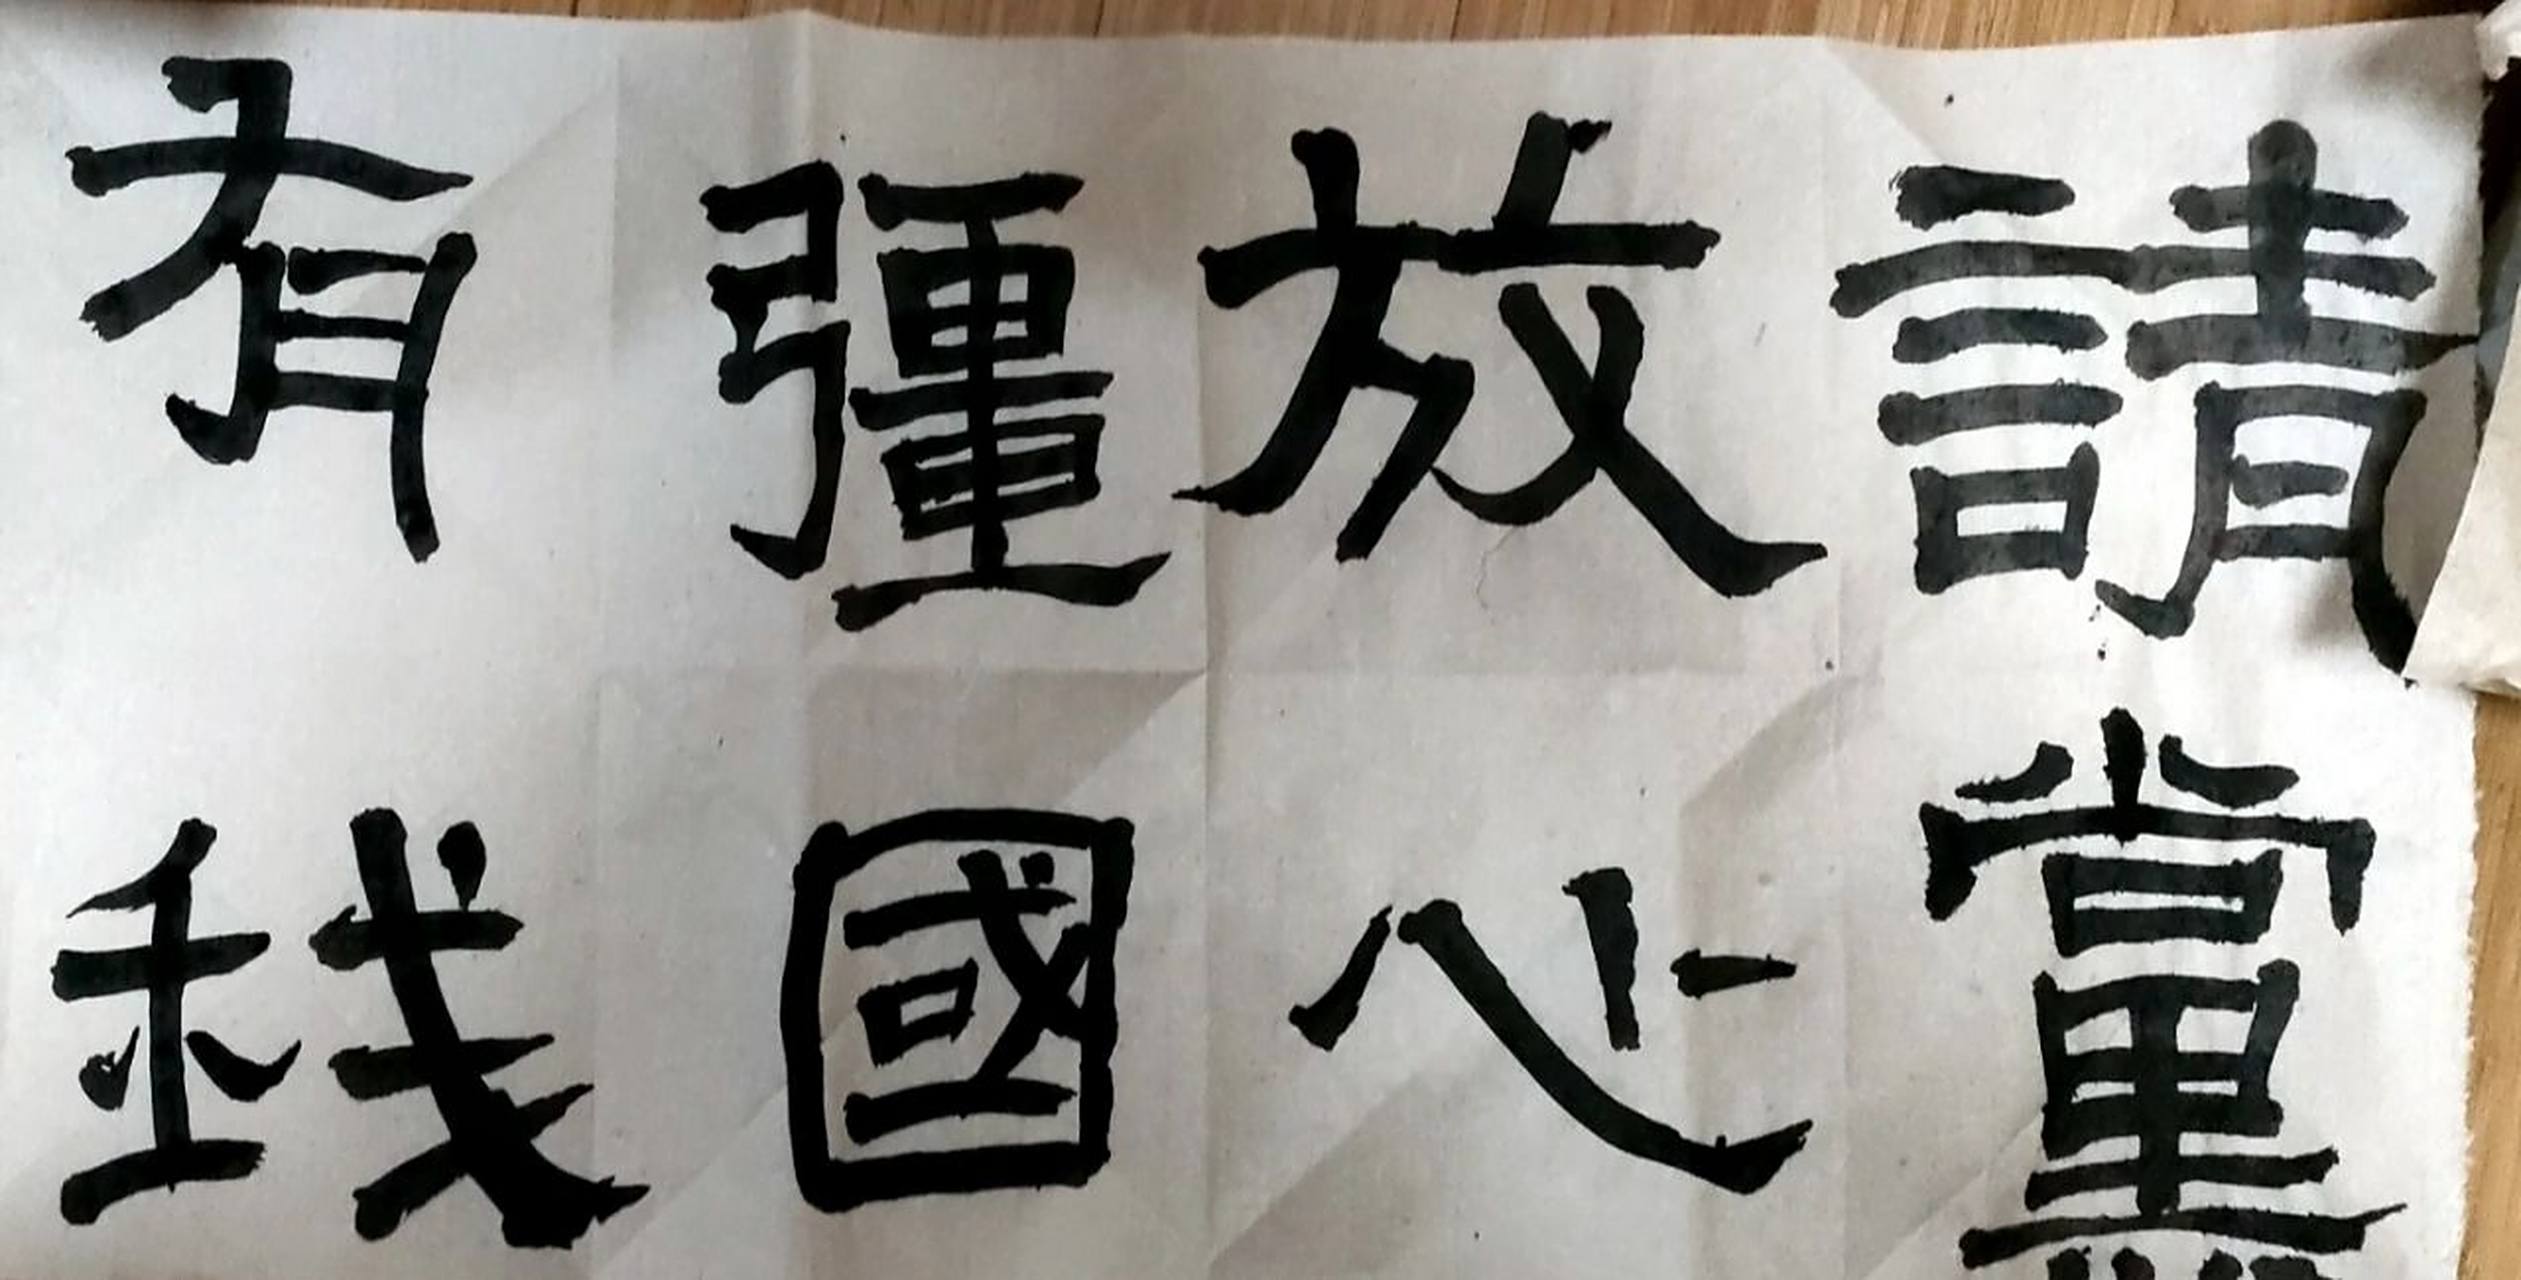 請黨
放心
彊國
有钱